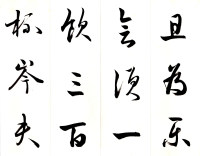 且為樂
會須一
飲三百
杯岑夫